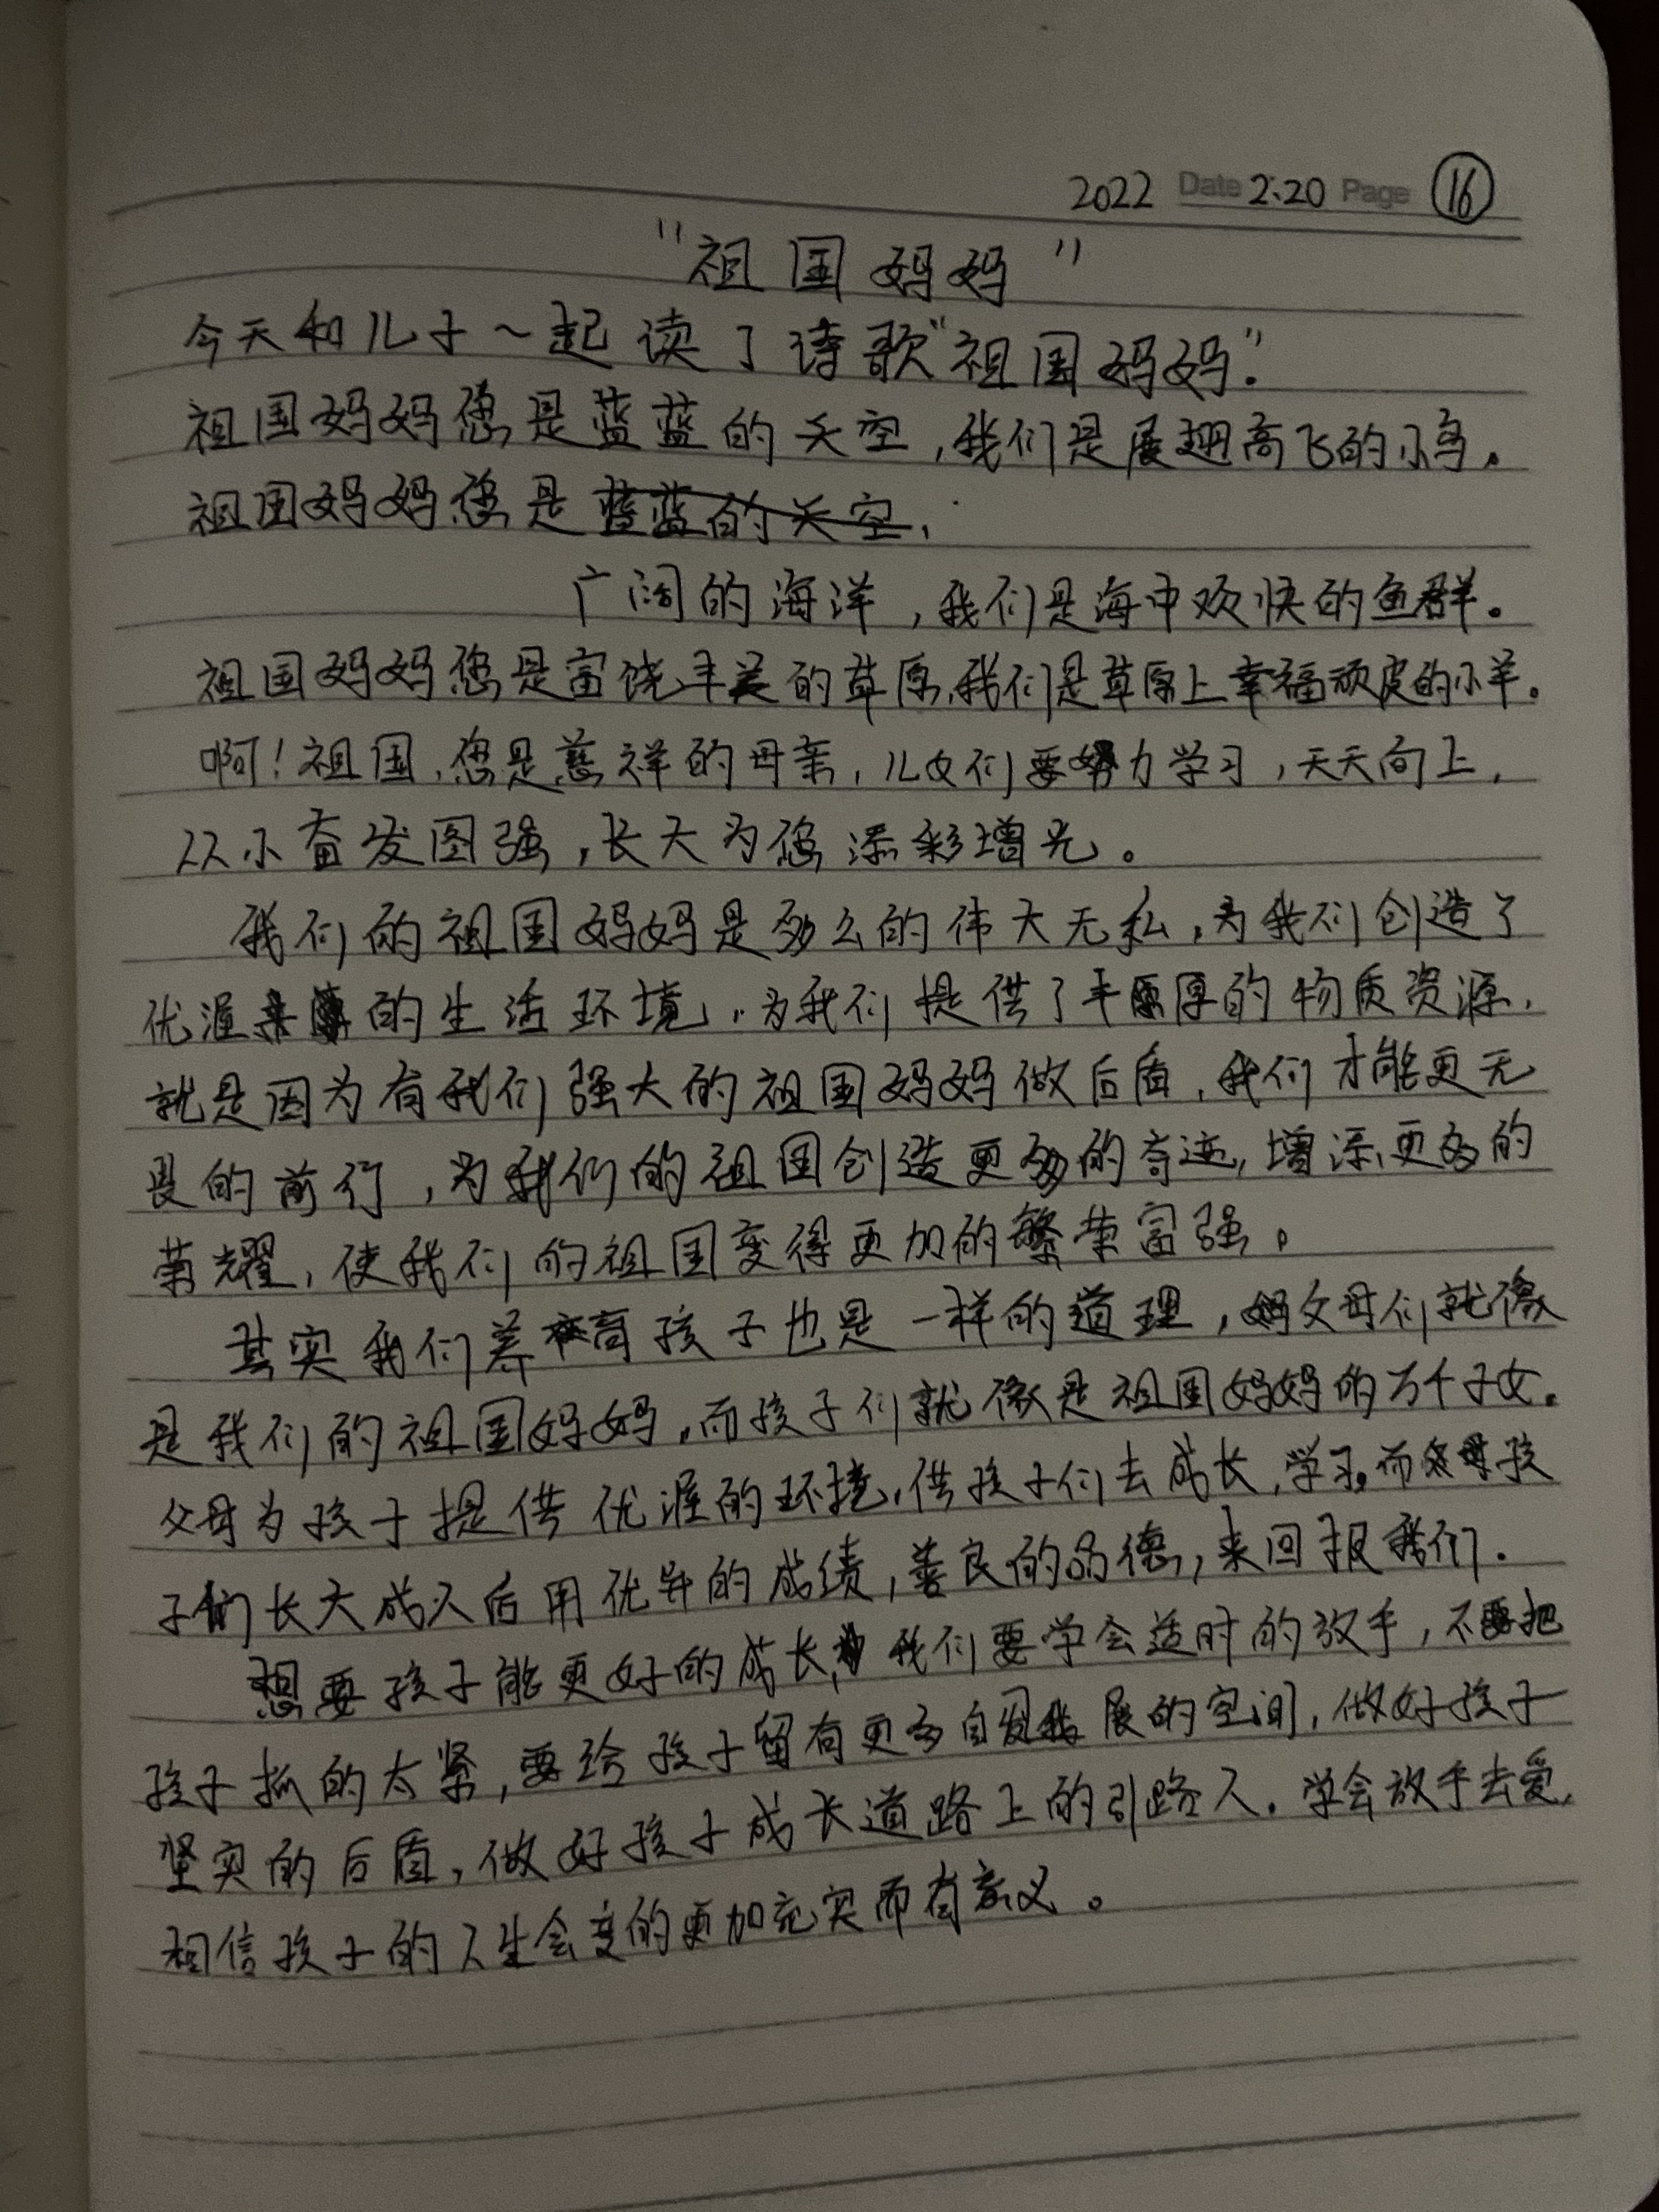 2022 Date 2.20 Page 16
"祖国妈妈"
今天和儿子一起读了诗歌"祖国妈妈".
祖国妈妈您是蓝蓝的天空,我们是展翅高飞的小鸟。
祖国妈妈您是蓝蓝的天空,
广阔的海洋,我们是海中欢快的鱼群。
祖国妈妈您是富饶丰美的草原,我们是草原上幸福顽皮的小羊。
啊!祖国,您是慈祥的母亲,儿女们要努力学习,天天向上,
从小奋发图强,长大为您添彩增光。
我们的祖国妈妈是多么的伟大无私,为我们创造了
优渥的生活环境,为我们提供了丰厚的物质资源,
就是因为有我们强大的祖国妈妈做后盾,我们才能更无
畏的前行,为我们的祖国创造更多的奇迹,增添更多的
荣耀,使我们的祖国变得更加的繁荣富强。
其实我们养育孩子也是一样的道理,父母们就像
是我们的祖国妈妈,而孩子们就像是祖国妈妈的万千子女。
父母为孩子提供优渥的环境,供孩子们去成长,学习。而孩
子们长大成人后用优异的成绩,善良的品德,来回报我们.
想要孩子能更好的成长,我们要学会适时的放手,不要把
孩子抓的太紧,要给孩子留有更多自我发展的空间,做好孩子
坚实的后盾,做好孩子成长道路上的引路人.学会放手去爱,
相信孩子的人生会变的更加充实而有意义。